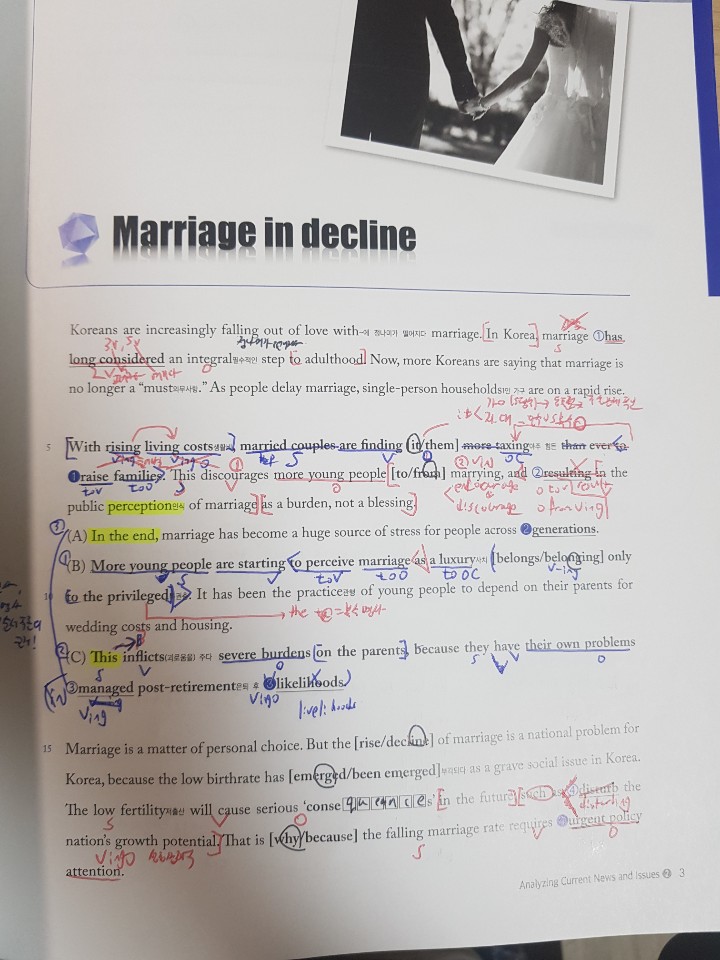 Marriage in decline
Koreans are increasingly falling out of love with -에 정나미가 떨어지다 marriage. [In Korea, marriage ①has
S
long considered an integral필수적인 step to adulthood. Now, more Koreans are saying that marriage is
no longer a “must의무사항.” As people delay marriage, single-person households1인 가구 are on a rapid rise.
5 [With rising living costs생활비], married couples are finding [it/them] more taxing아주 힘든 than ever to
❶raise families. This discourages more young people [to/from] marrying, and ②resulting in the
to V to O S
encourage
discourage O from Ving
public perception인식 of marriage as a burden, not a blessing.
③ (A) In the end, marriage has become a huge source of stress for people across ❷generations.
① (B) More young people are starting to perceive marriage as a luxury사치 [belongs/belonging] only
S V to V to O to OC V-ing
10 to the privileged. It has been the practice관행 of young people to depend on their parents for
wedding costs and housing.
② (C) This inflicts(괴로움을) 주다 severe burdens on the parents, because they have their own problems
S V O S V O
③managed post-retirement은퇴 후 ❸likelihoods.
Ving Ving O livelihoods
15 Marriage is a matter of personal choice. But the [rise/decline] of marriage is a national problem for
Korea, because the low birthrate has [emerged/been emerged]부각되다 as a grave social issue in Korea.
The low fertility저출산 will cause serious ‘consequences’ in the future, such as ④disturb the
S V O disturbing
nation's growth potential. That is [why/because] the falling marriage rate requires ❹urgent policy
Ving S V O
attention.
Analyzing Current News and Issues ❷ 3